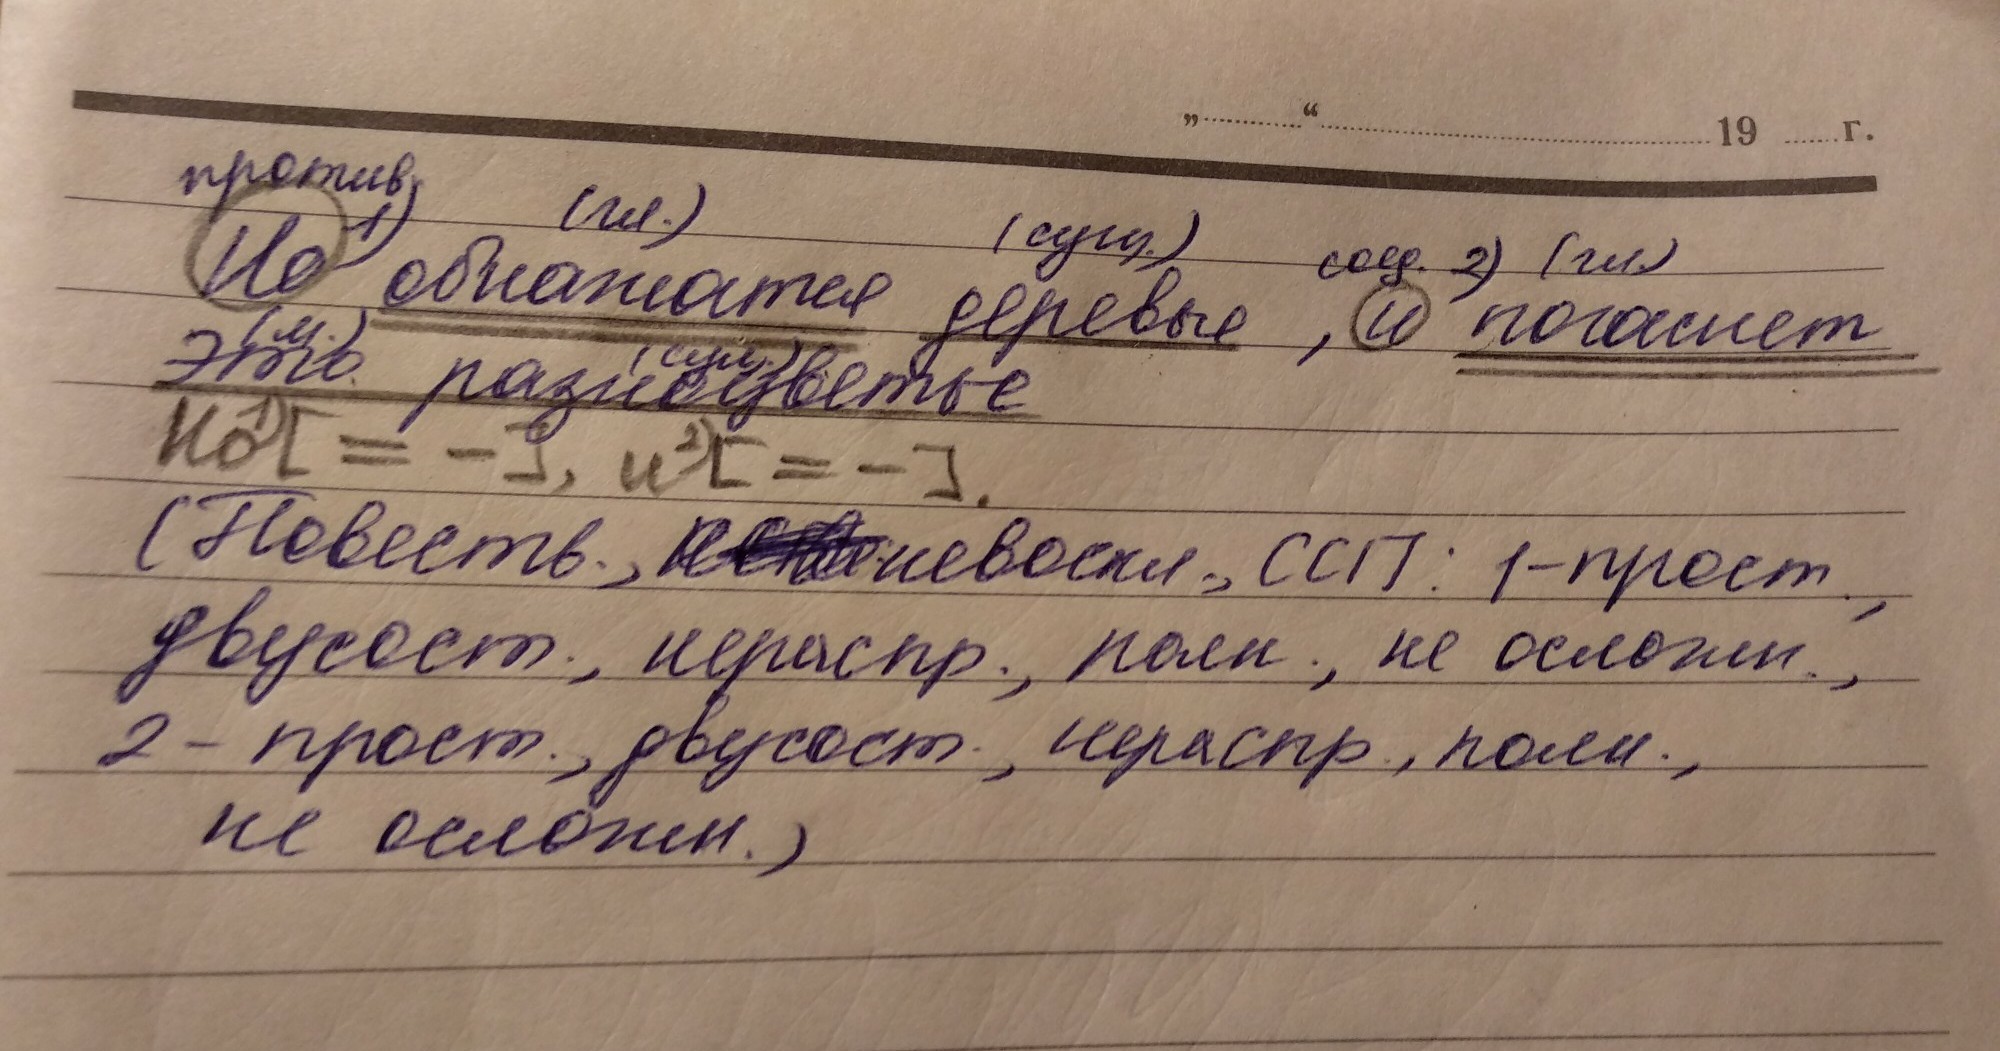 „..........“ .......................... 19 ...... г.
против. 1) (гл.) (сущ.) соед. 2) (гл.)
Но обнажатся деревья, и погаснет
(м.) (сущ.)
это разноцветье
Но 1)[ = - ], и 2)[ = - ].
(Повеств., невоскл., ССП: 1-прост.,
двусост., нераспр., полн., не осложн.,
2 - прост., двусост., нераспр., полн.,
не осложн.)